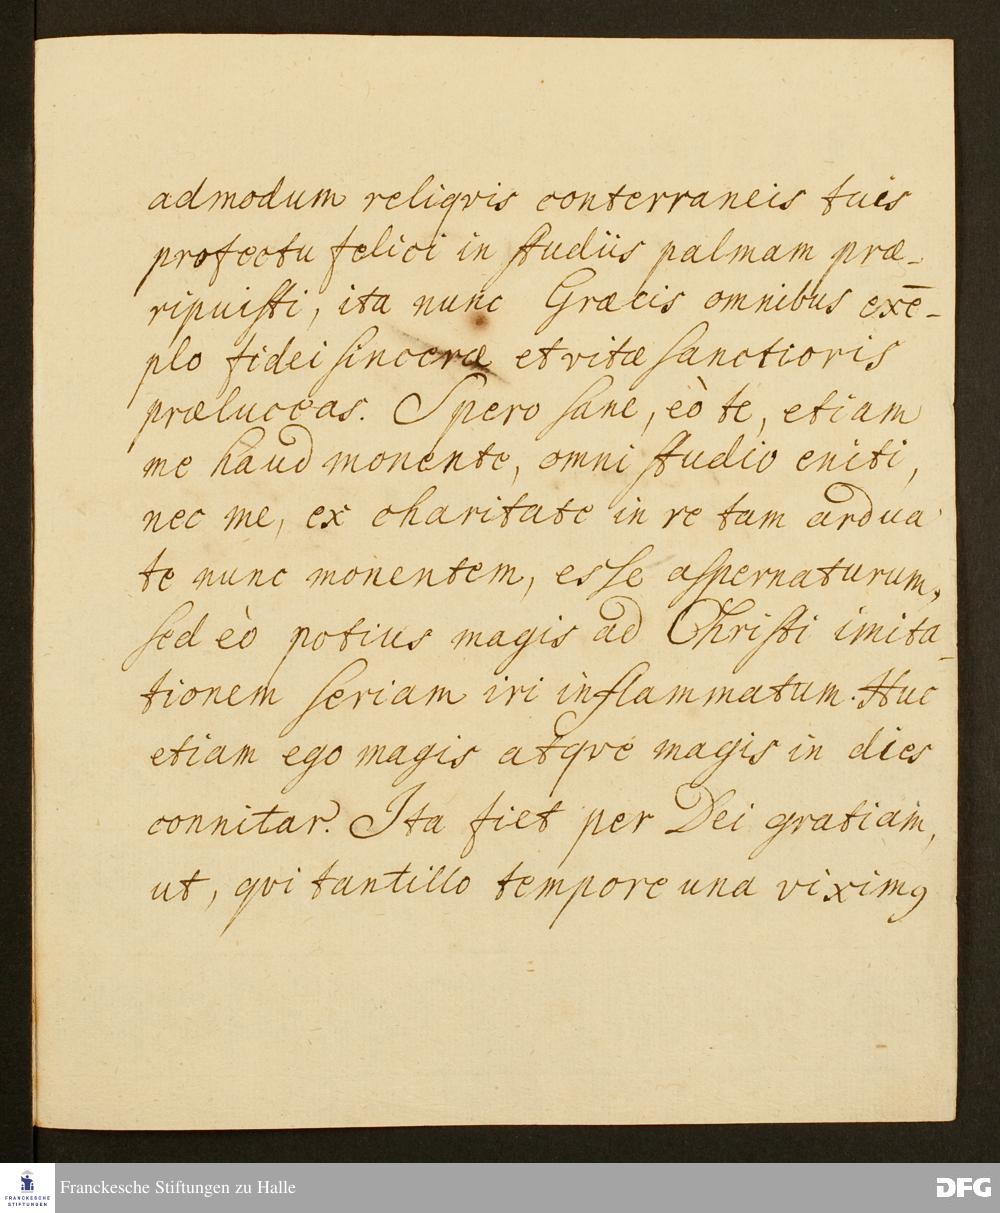 admodum reliqvis conterraneis tuis
profectu felici in studiis palmam præ-
ripuisti, ita nunc Græcis omnibus exē-
plo fidei sinceræ et vitæ sanctioris
præluceas. Spero sane, eò te, etiam
me haud monente, omni studio eniti,
nec me, ex charitate in re tam ardua
te nunc monentem, esse aspernaturum,
sed eò potius magis ad Christi imita-
tionem seriam iri inflammatum. Huc
etiam ego magis atqve magis in dies
connitar. Ita fiet per Dei gratiam,
ut, qvi tantillo tempore una viximꝰ
FRANCKESCHE
STIFTUNGEN
Franckesche Stiftungen zu Halle
DFG